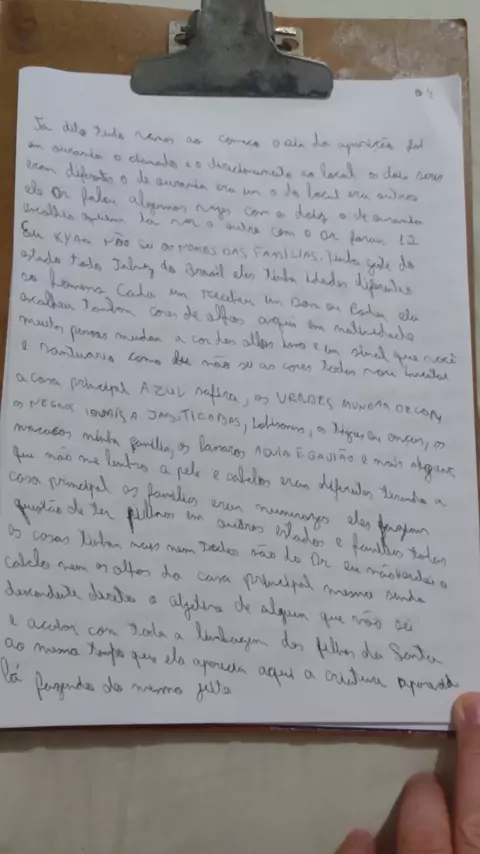 04
Ja dito tudo vamos ao começo o dia da aparição foi
em ourania o chamado e o direcionamento ao local o dois seres
eram diferentes o de ourania era um o do local era outros
ele Dr falou algumas vezes com os dois o de ourania
escolhia quem ia ver o outro com o Dr foram 12
Eu KYAN NÃO SEI OS NOMES DAS FAMÍLIAS. tinha gente do
estado todo do Brasil eles tinha idades diferentes
so homens Cada um recebeu um Dom ou Poder ele
escolheu também cores de olhos aqui em natividade
muitas pessoas mudam a cor dos olhos isso e um sinal que você
e Santuario como Eu não sei as cores todas vou
a casa principal AZUL safira, os VERDES
os NEGROS JABUTICABAS, Lobisomens, os tigres ou onças, os
macacos minha família, os ÁGUIA E GAVIÃO e mais alguns
que não me lembro a pele e cabelos eram diferentes
casa principal as familias eram numerosas eles faziam
questão de ter filhos em outros estados e familias todas
as casas tinham mais nem todos são do Dr eu não o
cabelo nem os olhos da casa principal mesmo sendo
descendente direto o de alguem que não sei
e acabou com toda a linhagem dos filhos da Santa
ao mesmo tempo que ela aparecia aqui a criatura aparecia
lá fazendo do mesmo jeito